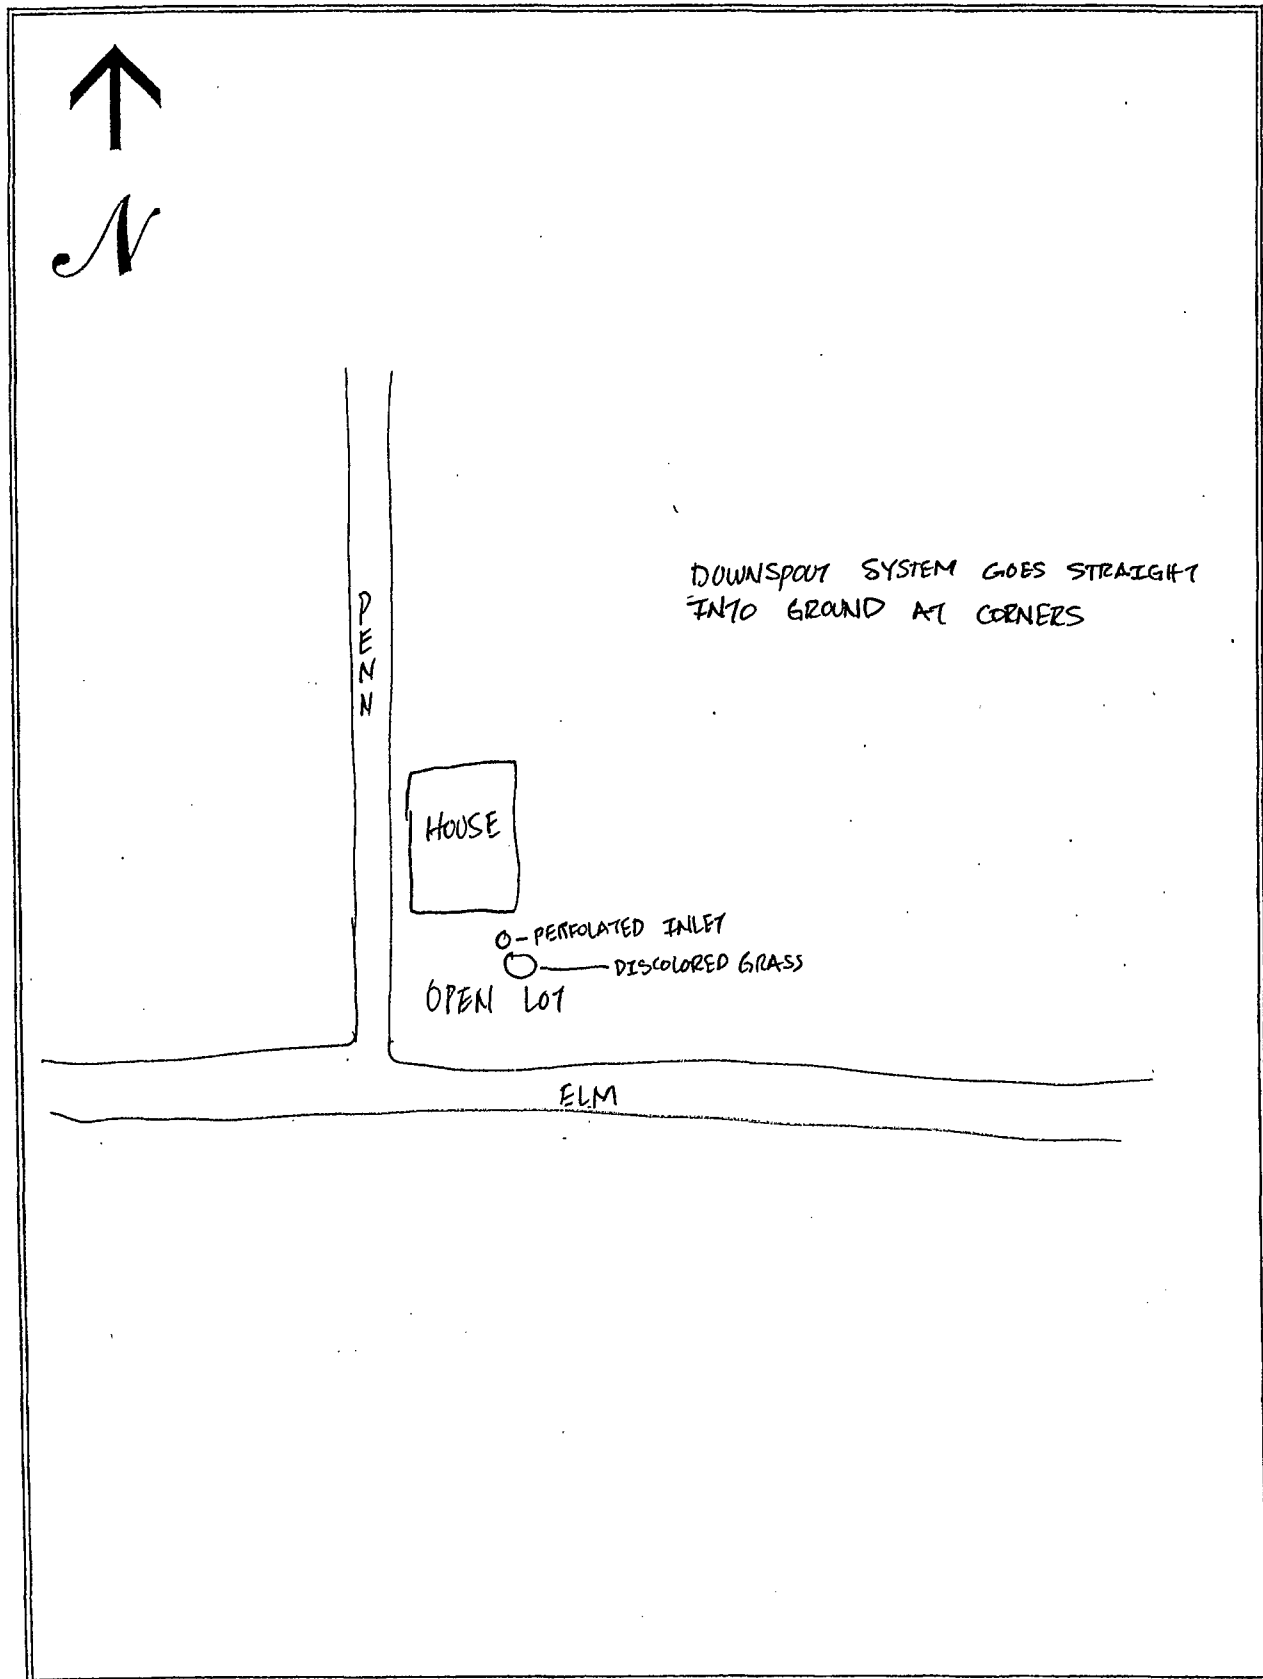 N
DOWNSPOUT SYSTEM GOES STRAIGHT
INTO GROUND AT CORNERS
PENN
HOUSE
PERFOLATED INLET
DISCOLORED GRASS
OPEN LOT
ELM